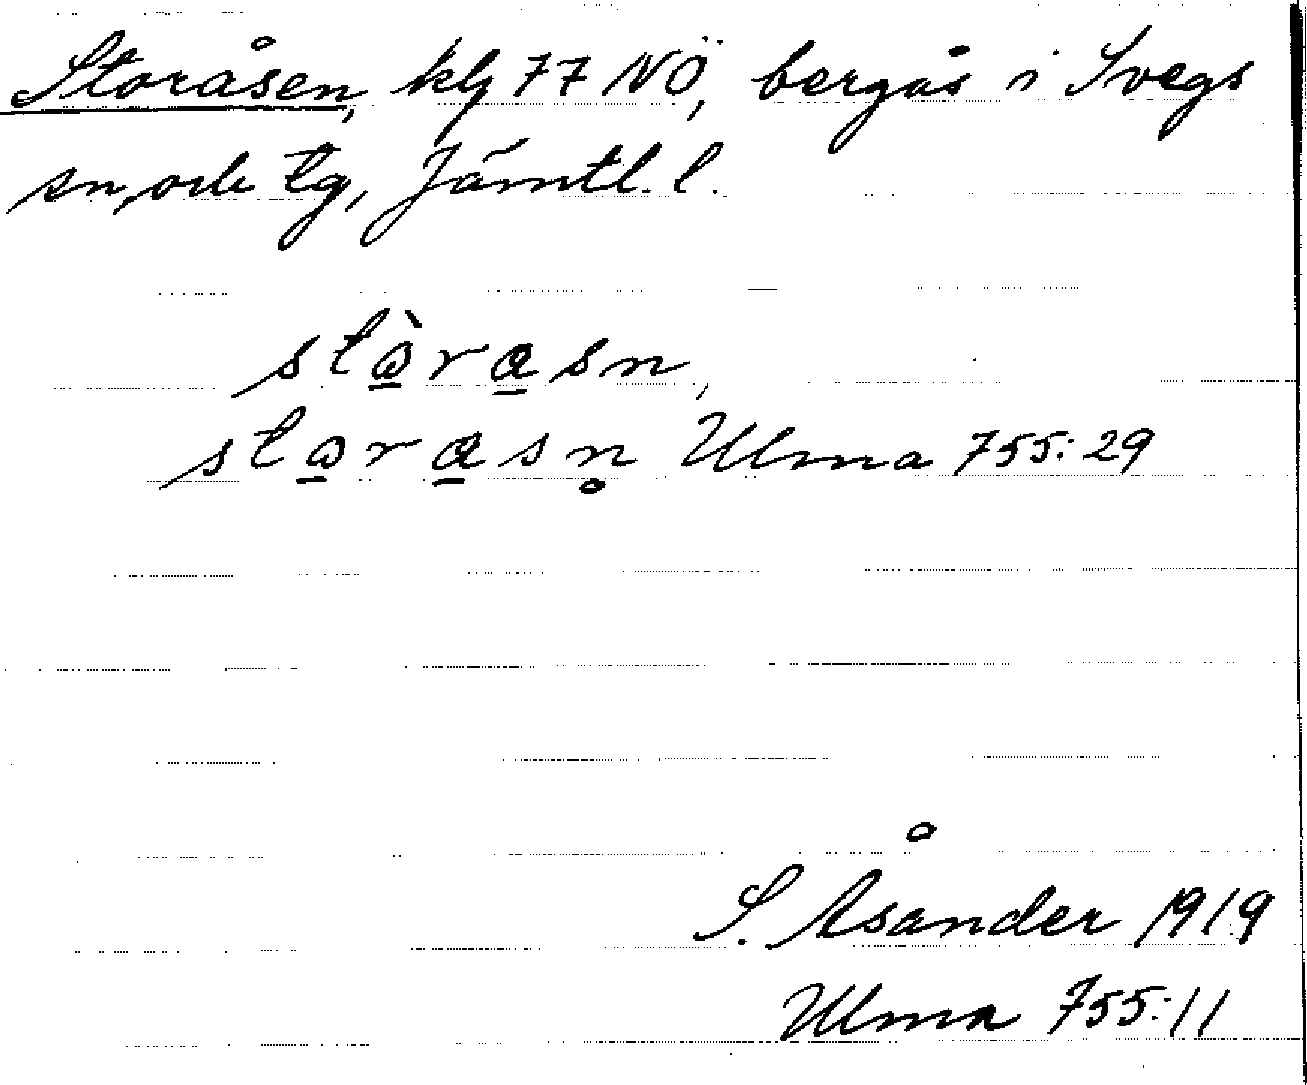 Storåsen, klj 77 NÖ, bergås i Svegs
sn, och tg, Jämtl. l.
stàrasn,
starasn̥ Ulma 755:29
S. Åsander 1919
Ulma 755:11